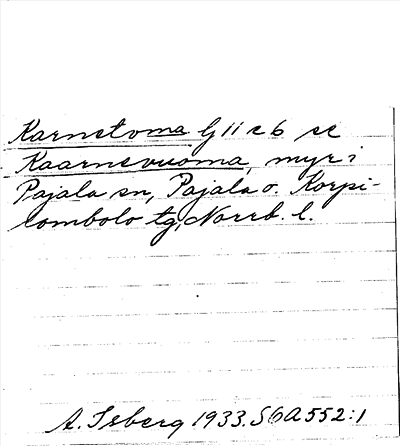 Karnetoma G ii e 6 se
Kaarnevuoma, myr i
Pajala sn, Pajala o. Korpi-
lombolo tg, Norrb. l.
A. Isberg 1933. S6A552:1